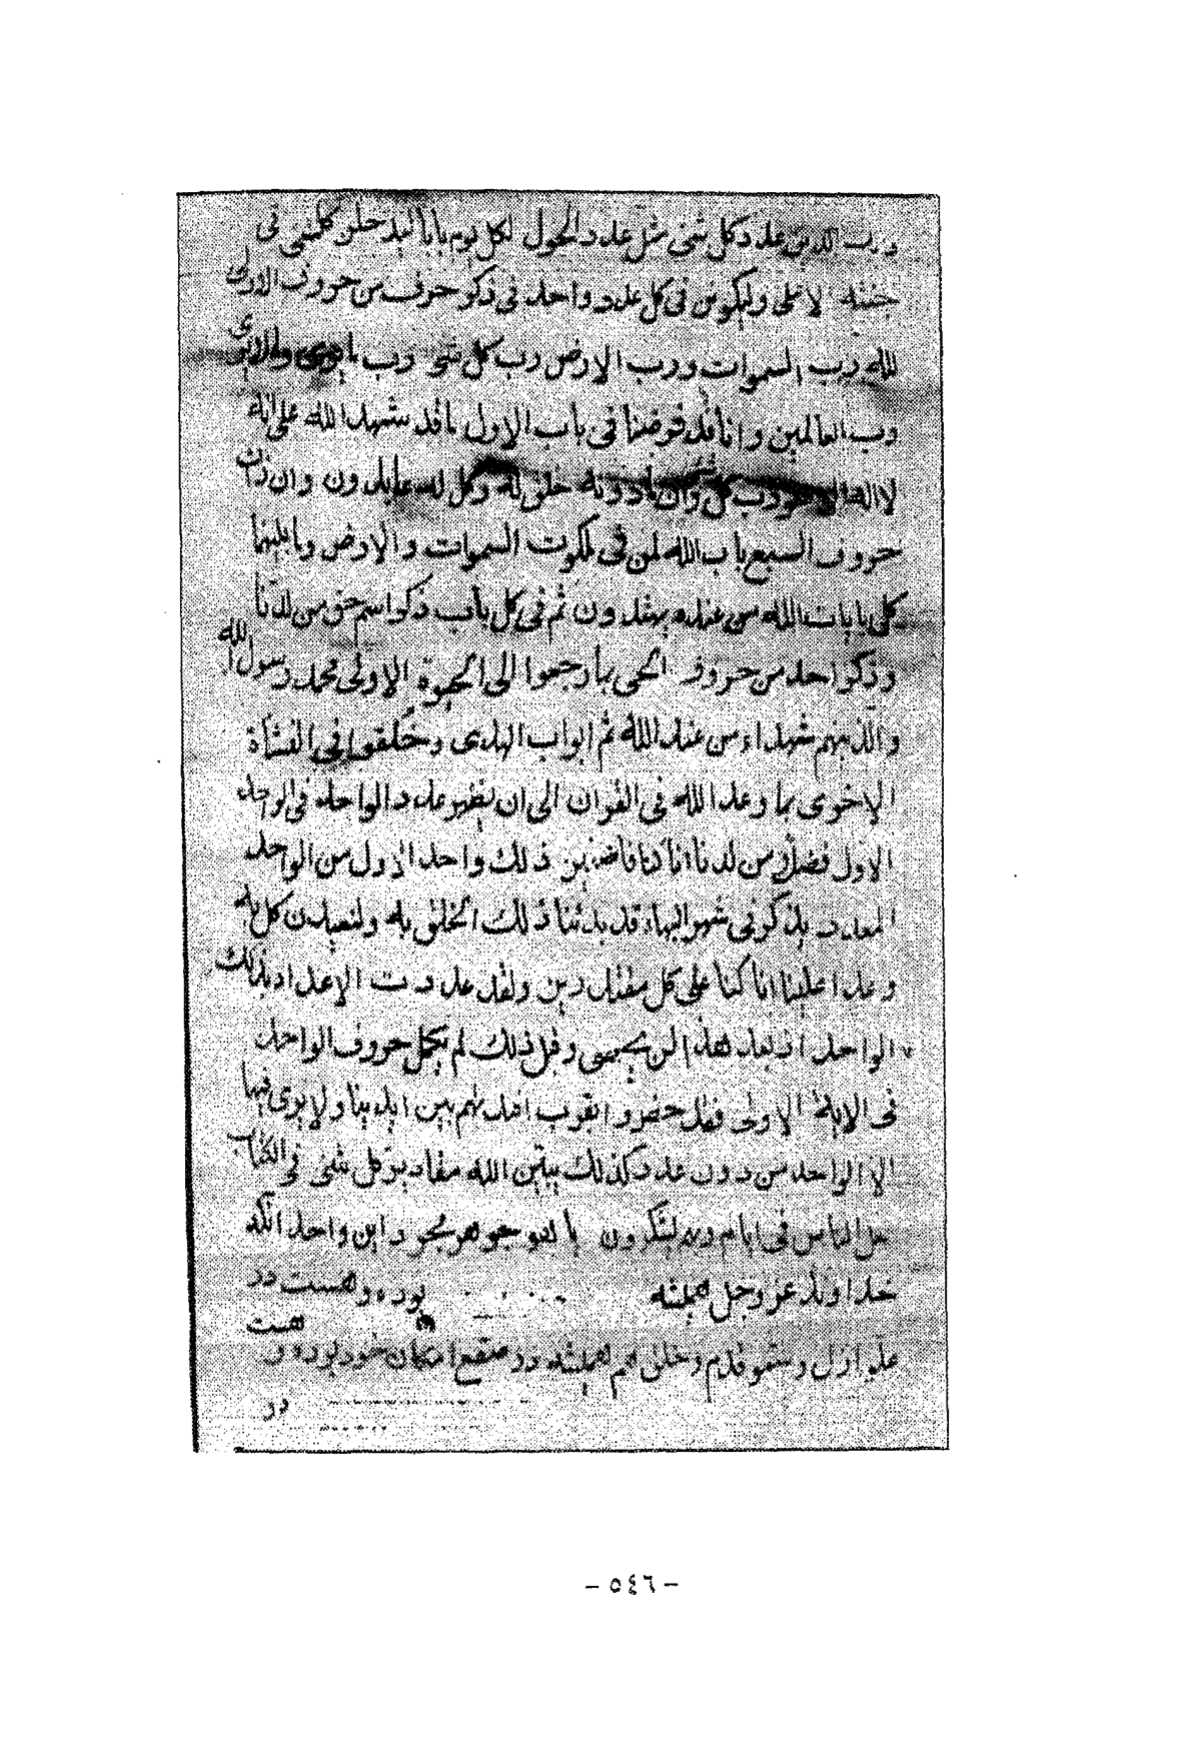 ورتبت الدين عدد كل شئ مثل عدد الحول لكل يوم بابا خلق كلشئ فی
جنته الاعلی وليكونن فی كل عدد واحد فی ذكر حرف من حروف الاول
لله رب السموات ورب الارض رب كل شئ رب ما يری وما لا يری
رب العالمين وانا قد فرضنا فی باب الاول ما قد شهد الله علی
لا اله الا هو رب كل شئ وان ما دونه خلق له وكل له عابدون وان ذات
حروف السبع باب الله لمن فی ملكوت السموات والارض وما بينهما
كل بايات الله من عنده يهتدون ثم فی كل باب ذكر اسم حق من لدنا
وذكر احد من حروف الحی بما رجعوا الی الحيوة الاولی محمد رسول الله
والذينهم شهداء من عند الله ثم ابواب الهدی وخلقوا فی النشأة
الاخری بما وعد الله فی القران الی ان يظهر عدد الواحد فی الواحد
الاول فضلا من لدنا انا كنا فاضلين ذلك واحد الاول من الواحد
المعدد يذكر فی شهر البهاء قد بدئنا ذلك الخلق به ولنعيدن كل به
وعدا علينا انا كنا علی كل مقتدرين ولقد عددت الاعداد بذلك
الواحد اذ بعد هذا لن يحصی وقبل ذلك لم يكمل حروف الواحد
فی الاية الاولی فقد حضروا بقرب افئدتهم بين ايدينا ولا يری فيها
الا الواحد من دون عدد كذلك يبين الله مقادير كل شئ فی الكتاب
لعل الناس فی ايام ربهم ليشكرون جوهر مجرد اين واحد انكه
خداوند عز وجل هميشه بوده وهست در
هست
علو ازل وسمو قدم وخلق هم هميشه در صقع امكان خود بوده و
در
– ٥٤٦ –